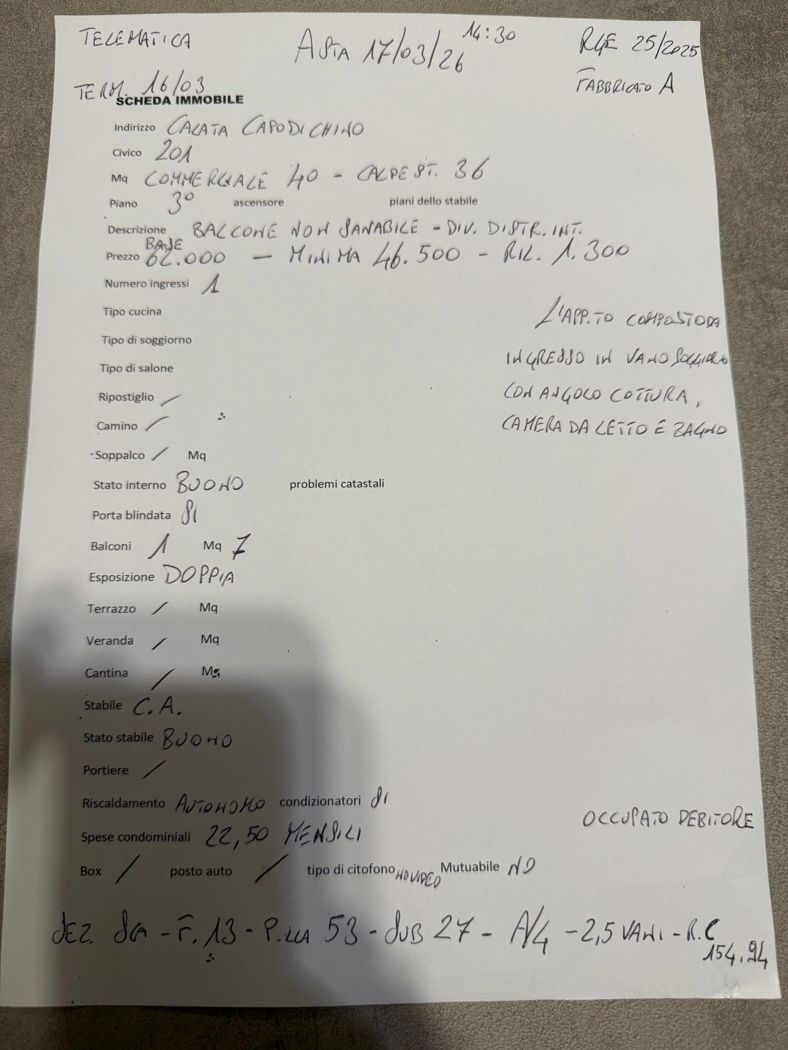 TELEMATICA
ASTA 17/03/26 14:30
RGE 25/2025
TERM. 16/03
FABBRICATO A
SCHEDA IMMOBILE
Indirizzo CALATA CAPODICHINO
Civico 201
Mq COMMERCIALE 40 - CALPEST. 36
Piano 3° ascensore piani dello stabile
Descrizione BALCONE NON SANABILE - DIV. DISTR. INT.
Prezzo BASE 62.000 - MINIMA 46.500 - RIL. 1.300
Numero ingressi 1
Tipo cucina
L'APP.TO COMPOSTO DA
Tipo di soggiorno
INGRESSO IN VANO SOGGIORNO
Tipo di salone
Ripostiglio /
CON ANGOLO COTTURA,
Camino /
CAMERA DA LETTO E BAGNO
Soppalco / Mq
Stato interno BUONO problemi catastali
Porta blindata SI
Balconi 1 Mq 7
Esposizione DOPPIA
Terrazzo / Mq
Veranda / Mq
Cantina / Mq
Stabile C.A.
Stato stabile BUONO
Portiere /
Riscaldamento AUTONOMO condizionatori SI
OCCUPATO DEBITORE
Spese condominiali 22,50 MENSILI
Box / posto auto / tipo di citofono NO VIDEO Mutuabile NO
SEZ. SCA - F. 13 - P.LLA 53 - SUB 27 - A/4 - 2,5 VANI - R.C
154,94